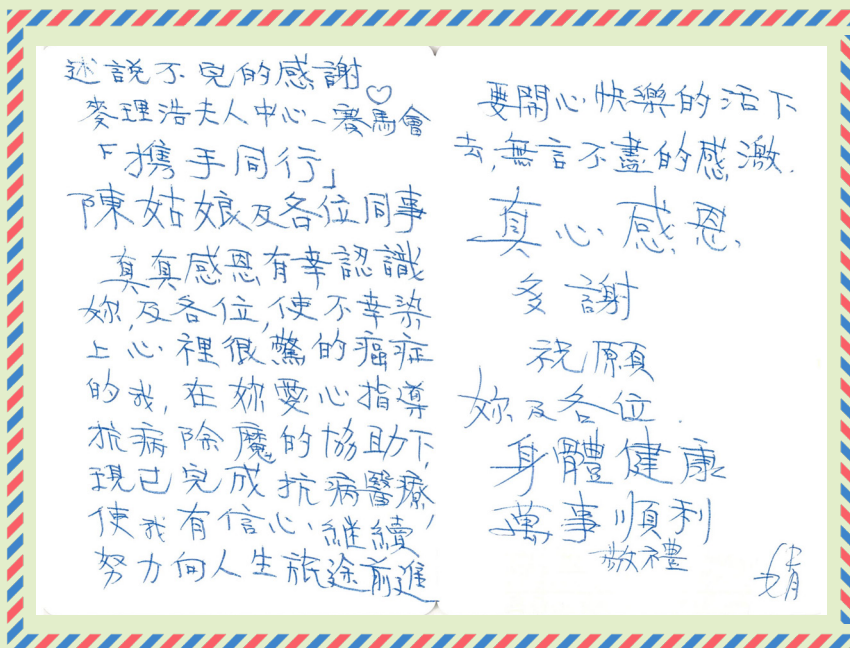 述說不完的感謝♡
麥理浩夫人中心–賽馬會
「攜手同行」
陳姑娘及各位同事
真真感恩有幸認識
妳,及各位,使不幸染
上心裡很驚的癌症
的我,在妳愛心指導
抗病除魔的協助下,
現已完成抗病醫療,
使我有信心、繼續
努力向人生旅途前進
要開心快樂的活下
去,無言不盡的感激.
真心感恩、
多謝
祝願
妳及各位.
身體健康
萬事順利
敬禮